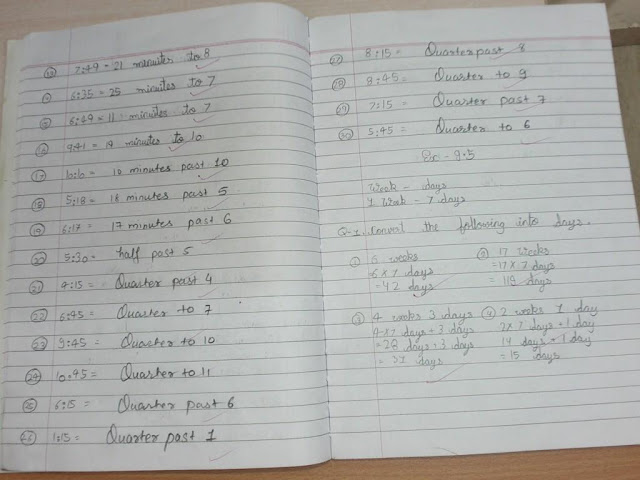 7:49 = 21 minutes to 8
6:35 = 25 minutes to 7
6:49 = 11 minutes to 7
9:41 = 19 minutes to 10
10 minutes past 10
(18) 5:18 = 18 minutes past 5
(19) 6:17 = 17 minutes past 6
(20) 5:30 = half past 5
(21) 4:15 = Quarter past 4
(22) 6:45 = Quarter to 7
(23) 9:45 = Quarter to 10
(24) 10:45 = Quarter to 11
(25) 6:15 = Quarter past 6
(26) 1:15 = Quarter past 1
(27) 8:15 = Quarter past 8
(28) 8:45 = Quarter to 9
7:15 = Quarter past 7
(30) 5:45 = Quarter to 6
Ex - 9.5
Week - days
1 Week - 7 days
Q-1. Convert the following into days.
(1) 6 weeks
6 x 7 days
= 42 days
(2) 17 weeks
= 17 x 7 days
= 119 days
(3) 4 weeks 3 days
4x7 days + 3 days
= 28 days + 3 days
= 31 days
(4) 2 weeks 1 day
2x 7 days + 1 day
14 days + 1 day
= 15 days